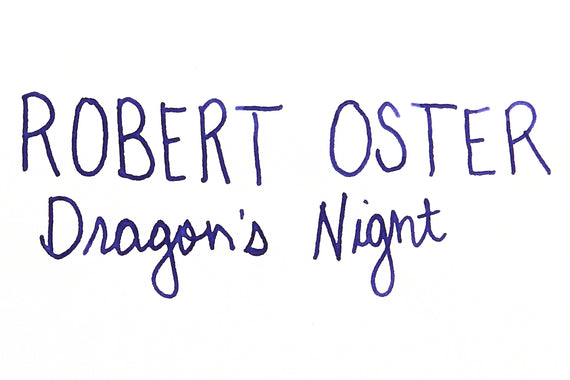 ROBERT OSTER
Dragon's Night